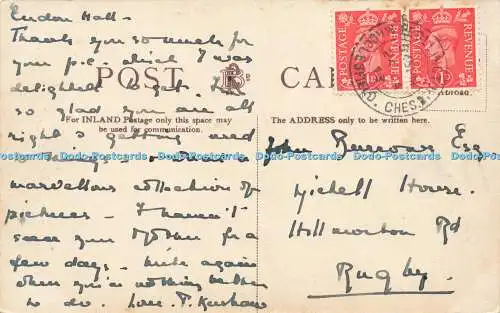 Rudon Hall —
Thank you so much for
your p.c. which I was
delighted to get. I'm
so glad you are all
right & getting used
to things. What a
marvellous collection of
pictures — I haven't
seen your Mother for a
few days — write again
when you've nothing better
to do. Love. P. Kershaw
POST CARD
For INLAND Postage only this space may
be used for communication.
The ADDRESS only to be written here.
POSTAGE REVENUE
1D
POSTAGE REVENUE
1D
CHES
ABROAD.
John Burrows Esq
Michell House.
Hillmorton Rd
Rugby.
Dodo-Postcards